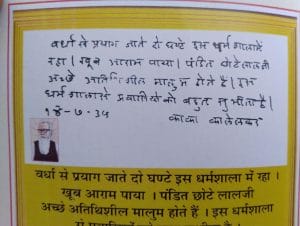 वर्धा से प्रयाग जाते दो घण्टे इस धर्मशालामें
रहा। खूब आराम पाया। पंडित छोटेलालजी
अच्छे अतिथिशील मालुम होते हैं। इस
धर्मशालासे प्रवासियोंको बहुत सुभीता है।
१४-७-३५
काका कालेलकर
वर्धा से प्रयाग जाते दो घण्टे इस धर्मशाला में रहा ।
खूब आराम पाया । पंडित छोटे लालजी
अच्छे अतिथिशील मालुम होते हैं । इस धर्मशाला